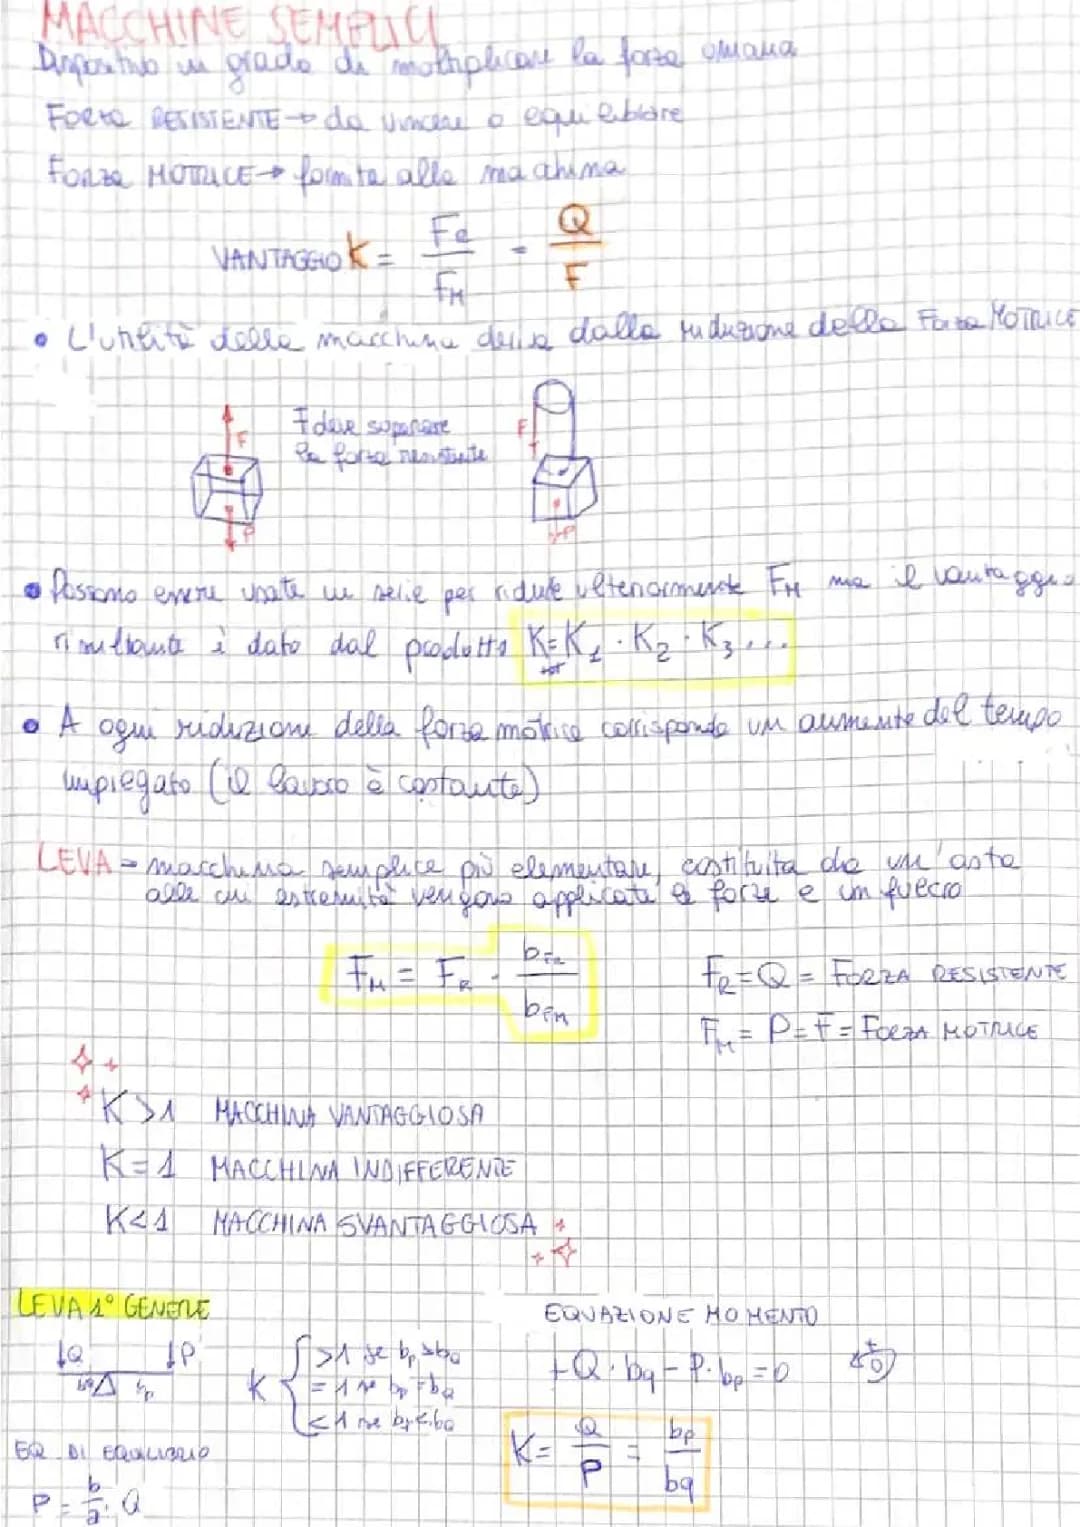 MACCHINE SEMPLICI
Dispositivo in grado di moltiplicare la forza umana
Forza RESISTENTE → da vincere o equilibrare
Forza MOTRICE → fornita alla macchina
VANTAGGIO K = FR / FM = Q / F
• L'utilità della macchina deriva dalla riduzione della Forza MOTRICE
F deve superare
la forza resistente
F
P
F
P
• Possono essere usate in serie per ridurre ulteriormente FM ma il vantaggio
risultante è dato dal prodotto Ktot = K1 · K2 · K3 ...
• A ogni riduzione della forza motrice corrisponde un aumento del tempo
impiegato (il lavoro è costante)
LEVA → macchina semplice più elementare, costituita da un'asta
alle cui estremità vengono applicate le forze e un fulcro
FM = FR · bFR / bFM
FR = Q = FORZA RESISTENTE
FM = P = F = FORZA MOTRICE
K > 1 MACCHINA VANTAGGIOSA
K = 1 MACCHINA INDIFFERENTE
K < 1 MACCHINA SVANTAGGIOSA
LEVA 1° GENERE
Q P
bq bp
K { > 1 se bp > bq
= 1 se bp = bq
< 1 se bp < bq
EQUAZIONE MOMENTO
+Q · bq - P · bp = 0
K = Q / P = bp / bq
EQ. DI EQUILIBRIO
P = b / a · Q